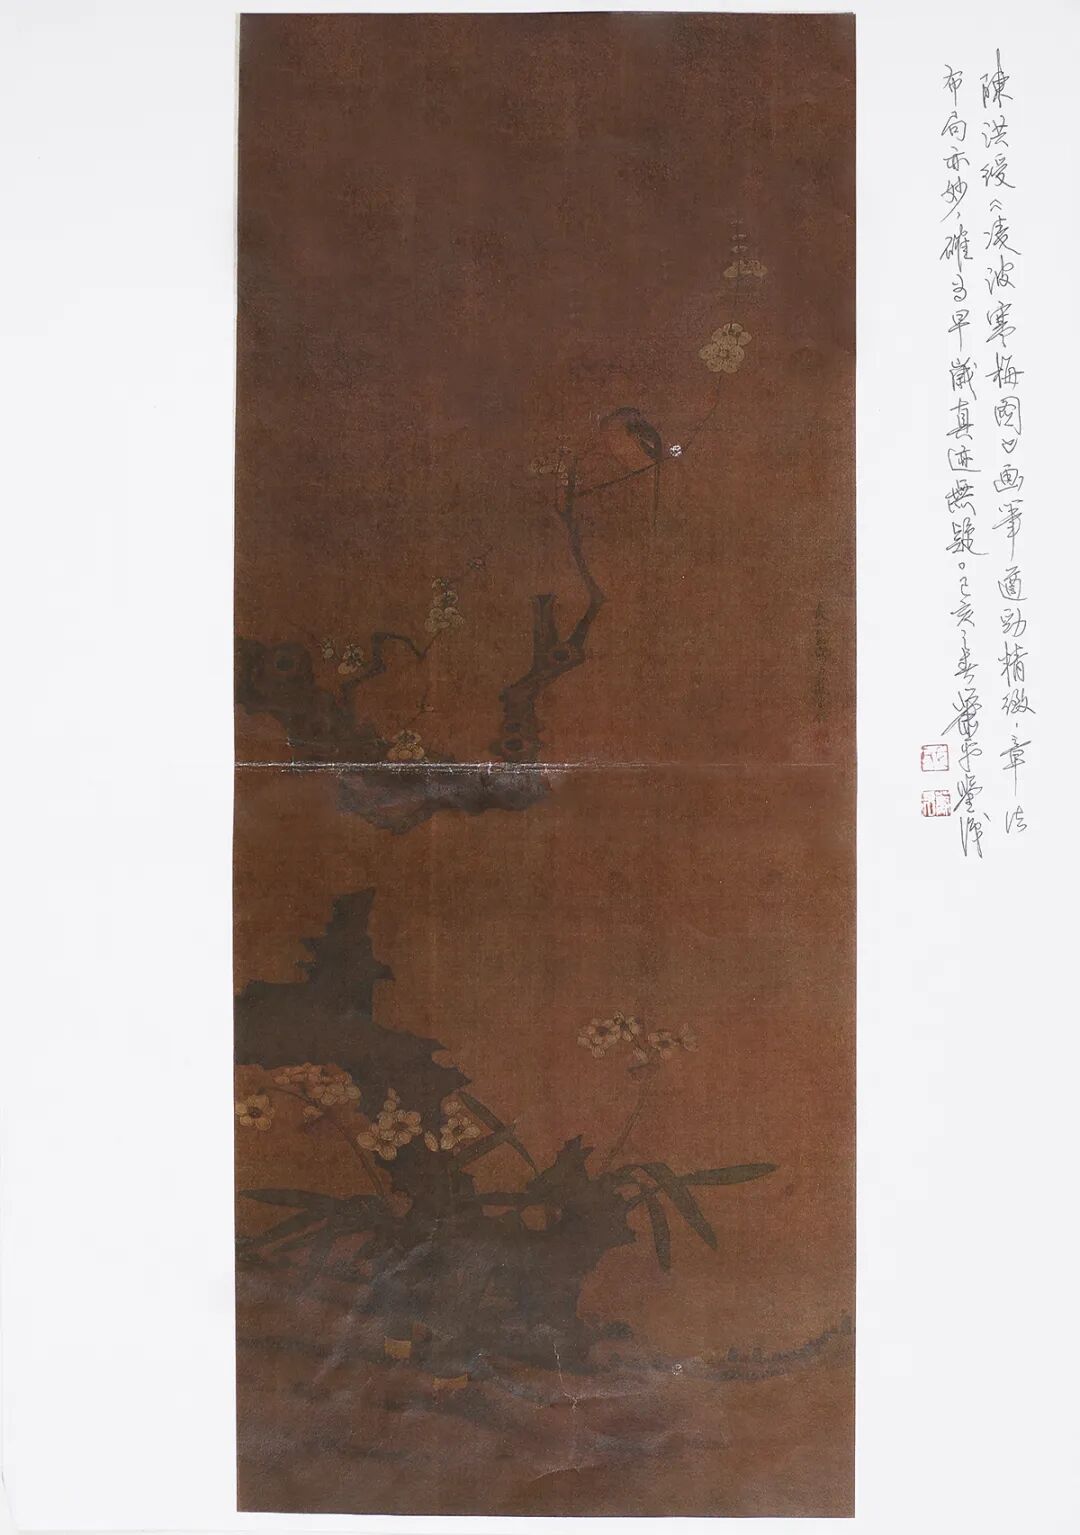 陳洪綬《凌波寒梅图》画筆遒勁精緻，章法
布局亦妙，確为早歲真迹無疑。己亥春
鑒識